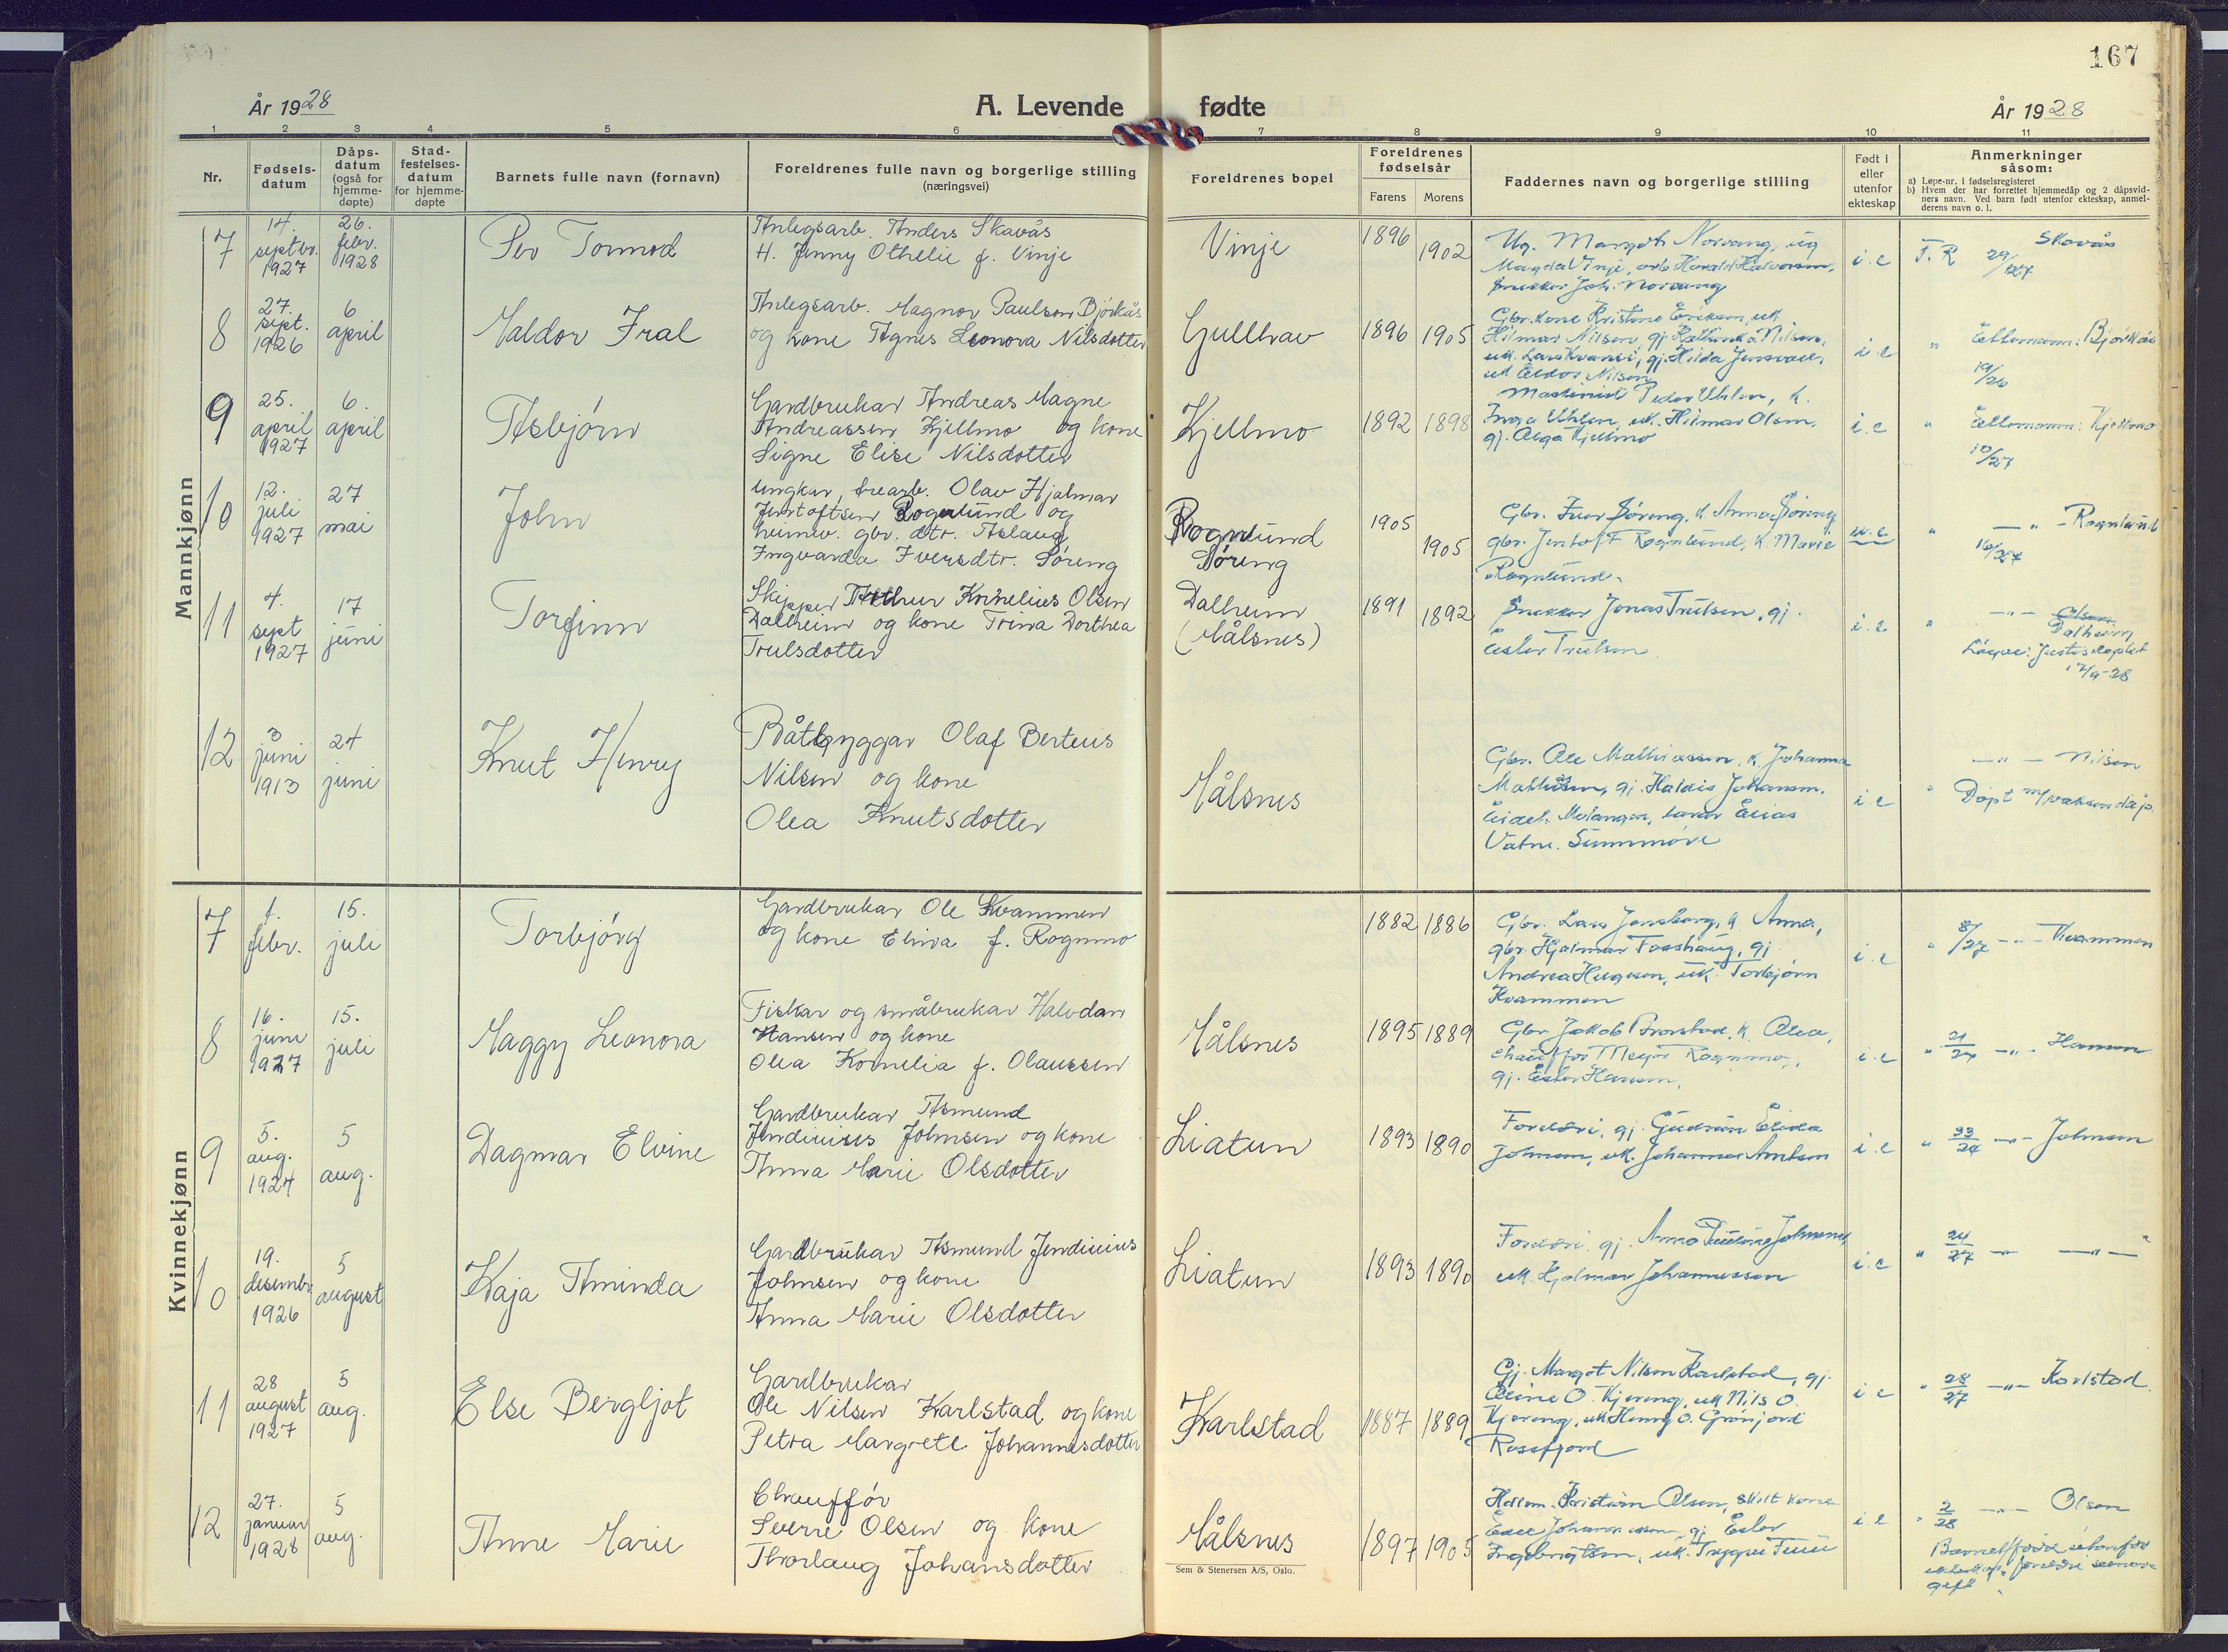 167
År 1928
A. Levende fødte
År 1928
1 2 3 4 5 6 7 8 9 10 11
Nr.
Fødsels-
datum
Dåps-
datum
(også for
hjemme-
døpte)
Stad-
festelses-
datum
for hjemme-
døpte
Barnets fulle navn (fornavn)
Foreldrenes fulle navn og borgerlige stilling
(næringsvei)
Foreldrenes bopel
Foreldrenes
fødselsår
Farens
Morens
Faddernes navn og borgerlige stilling
Født i
eller
utenfor
ekteskap
Anmerkninger
såsom:
a) Løpe-nr. i fødselsregisteret
b) Hvem der har forrettet hjemmedåp og 2 dåpsvid-
ners navn. Ved barn født utenfor ekteskap, anmel-
derens navn o. l.
Mannkjønn
7
14.
septbr.
1927
26.
febr.
1928
Per Tormod
Anlegsarb. Anders Skavås
H. Jenny Othelie f. Vinje
Vinje
1896
1902
Ug. Margoth Norvang, ug
Magda Vinje, arb. Harald Halvorsen,
Snekker Joh. Norvang
i.e
F.R 29/127 Skavås
8
27.
sept.
1926
6
april
Haldor Iral
Anlegsarb. Magnor Paulsen Bjørkås
og kone Agnes Leonora Nilsdotter
Gullhav
1896
1905
Gbr. kone Kristine Eriksen, uk.
Hilmar Nilsen, gj. Nilsen,
uk. Lars , gj. Hilda
uk Eldor Nilsen
i.e
" Bjørkås
19/26
9
25.
april
1927
6.
april
Asbjørn
Gardbrukar Andreas Magne
Andreassen Kjellmo og kone
Signe Elise Nilsdotter
Kjellmo
1892
1898
Maskinist Peder Uhlen, k.
Inga Uhlen, uk. Hilmar Olsen,
gj. Olga Kjellmo
i.e
" Kjellmo
10/27
10
12.
juli
1927
27
mai
John
Ungkar, Olav Hjalmar
Jentoftsen Rognlund og
heimev. gbr. dtr. Aslaug
Ingvarda Iversdtr. Søreng
Rognlund
Søreng
1905
1905
Gbr. Iver Søreng, k Anna Søreng
gbr. Jentoft Rognlund, k. Marie
Rognlund.
u.e
" — " — Rognlund
16/27
11
4.
sept
1927
17
juni
Torfinn
Skipper Arthur Kornelius Olsen
Dalheim og kone Trina Dorthea
Trulsdotter
Dalheim
(Målsnes)
1891
1892
Snekker Jonas Trulsen, gj.
Ester Trulsen
i.e
" — " — Olsen
Dalheim
17/9-28
12
3
juni
1913
24
juni
Knut Henry
Båtbyggar Olaf Berteus
Nilsen og kone
Olea Knutsdotter
Målsnes
Gbr. Ole Mathiassen, k. Johanna
Mathisen, gj. Haldis Johansen,
Eidet. Malangen, lærar Elias
Vatne. Sunnmøre
i.e
— " — Nilsen
" Døpt m/vaksendåp.
Kvinnekjønn
7
1.
febr.
15.
juli
Torbjørg
Gardbrukar Ole Kvammen
og kone Elina f. Rognmo
1882
1886
Gbr. Lars Jensberg, k Anna,
gbr. Hjalmar Fosshaug, gj
Andrea Hugesen, uk. Torbjørn
Kvammen
i.e
" 8/27 — " — Kvammen
8
16.
juni
1927
15.
juli
Maggy Leonora
Fiskar og småbrukar Halvdan
Hansen og kone
Olea Kornelia f. Olaussen
Målsnes
1895
1889
Gbr. Jakob Brostad, k. Olea,
chauffør Meyer Rognmo,
gj. Ester Hansen,
i.e
" 21/27 — " — Hansen
9
5.
aug.
1924
5
aug.
Dagmar Elvine
Gardbrukar Asmund
Jendinius Johnsen og kone
Anna Marie Olsdotter
Liatun
1893
1890
Foreldri, gj. Gudrun Elida
Johnsen, uk. Johannes Arntsen
i.e
" 33/24 — " — Johnsen
10
19.
desembr
1926
5
august
Kaja Aminda
Gardbrukar Asmund Jendinius
Johnsen og kone
Anna Marie Olsdotter
Liatun
1893
1890
Foreldri, gj. Anna Pauline Johnsen,
uk. Hjalmar Johannessen
i.e
" 24/27 — " — — " — "
11
28
august
1927
5
aug.
Else Bergljot
Gardbrukar
Ole Nilsen Karlstad og kone
Petra Margrete Johannesdotter
Karlstad
1887
1889
Gj. Margot Nilsen Karlstad, gj.
Oline O. Kjereng, uk Nils O.
Kjereng, uk Henry O. Grønjord
Rossfjord
i e
" 28/27 — " — Karlstad.
12
27.
januar
1928
5
aug.
Anne Marie
Chauffør
Sverre Olsen og kone
Thorlaug Johansdotter
Målsnes
1897
1905
Kristian Olsen, skilt kone
Johannessen, gj Ester
Ingebrigtsen, uk. Trygve
i.e
" 2/28 — " — Olsen
Barnet fødd utanfor
ekteskap, foreldri seenare
gift
Sem & Stenersen A/S, Oslo.